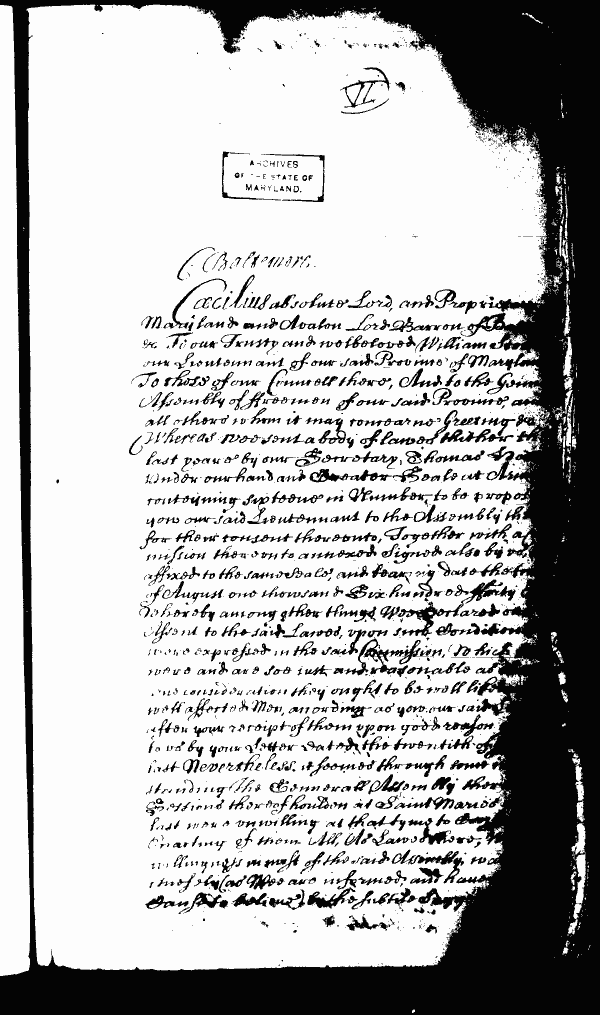 VI
ARCHIVES
OF THE STATE OF
MARYLAND.
C Baltemore.
Cæcilius absolute Lord, and Proprietary
Maryland and Avalon Lord Barron of
& To our Trusty and welbeloved William
our Lieutennant of our said Province of Maryland
To those of our Councell there, And to the
Assembly of ffreemen of our said Province, and
all others whom it may concerne Greeting &c
Whereas wee sent a body of lawes thither
last yeare by our Secretary, Thomas
Under our hand and Greater Seale at Armes
conteyning sixteene in Number, to be propos
you our said Lieutennant to the Assembly
for their consent thereunto, Together with a
mission thereunto annexed Signed also by us
affixed to the same Seale, and bearing date the
of August one thousand Six hundred fforty
Whereby among other things Wee Declared our
Assent to the said Lawes, upon such Conditions
were expressed in the said Commission, Which
were and are soe just and reasonable as
due consideration they ought to be well liked
well affected Men, according as you our said
after your receipt of them upon good reason
to us by your Letter Dated the twentith of
last Nevertheless, it seemes through some
standing The Gennerall Assembly there
Sessions thereof houlden at Saint Maries
last were unwilling at that tyme to
Enacting of them All, As Lawes there,
willingness in most of the said Assembly, was
(as Wee are informed, and have
Cause to believe) by the subtile